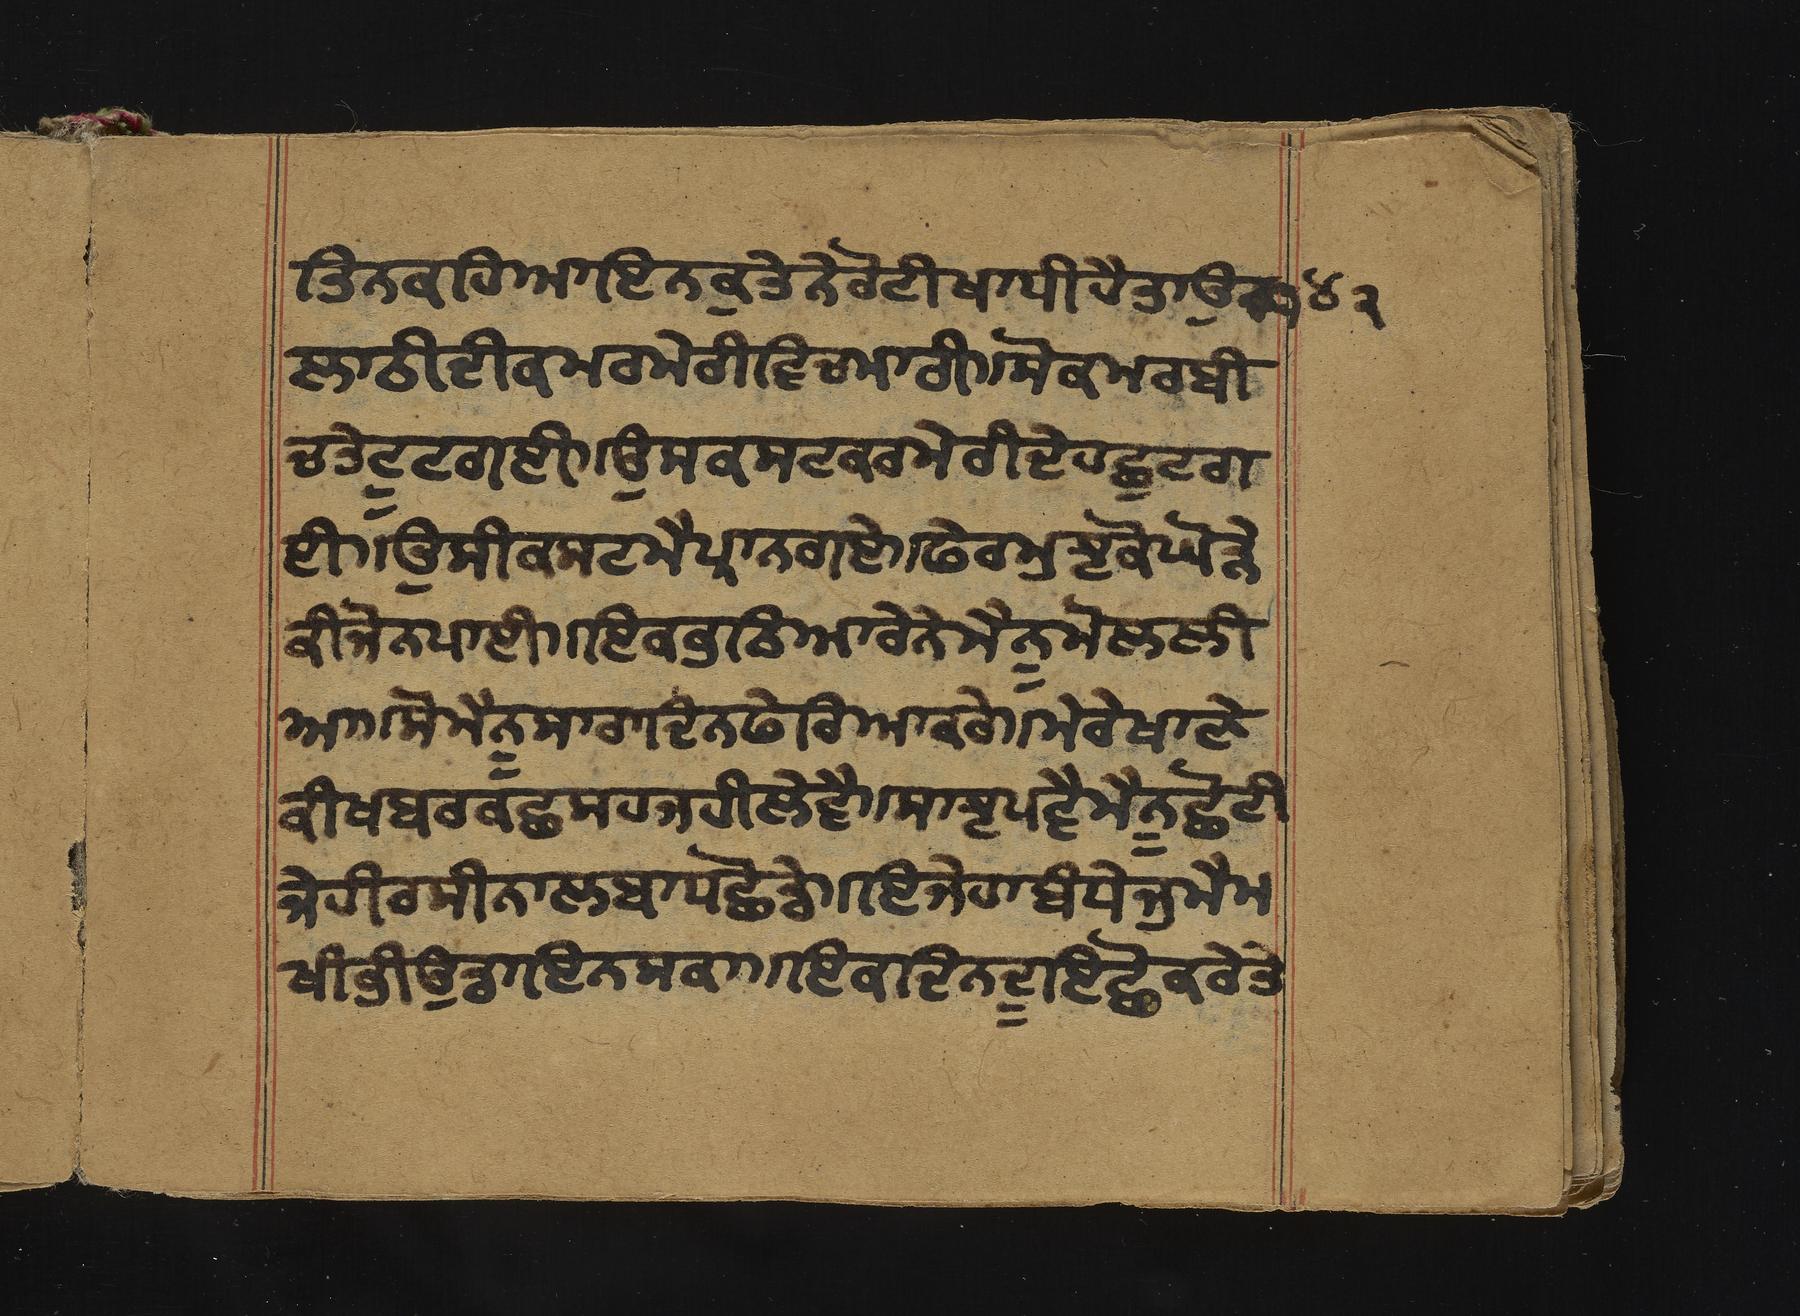 ਤਿਨਕਹਿਆਇਨਕੁਤੇਨੇਰੋਟੀਖਾਧੀਹੈਤਾਉਕ ੪੨
ਲਾਠੀਦੀਕਮਰਮੇਰੀਵਿਚਮਾਰੀ॥ਸੋਕਮਰਬੀ
ਚਤੇਟੂਟਗਈ॥ਉਸਕਸਟਕਰਮੇਰੀਦੇਹਛੁਟਗ
ਈ॥ਉਸੀਕਸਟਮੈਪ੍ਰਾਨਗਏ॥ਫੇਰਮੁਝਕੋਘੋੜੇ
ਕੀਜੋਨਪਾਈ॥ਇਕਭੁਠਿਆਰੇਨੇਮੈਨੂਮੋਲਲੀ
ਆ॥ਸੋਮੈਨੂਸਾਰਾਦਿਨਫੇਰਿਆਕਰੇ॥ਮੇਰੇਖਾਣੇ
ਕੀਖਬਰਕਛੁਸਹਜਹੀਲੇਵੈ॥ਸਾਝਪਵੈਮੈਨੂਛੋਟੀ
ਜੇਹੀਰਸੀਨਾਲਬਾਧਛੋਡੇ॥ਇਜੇਹਾਬੰਧੇਜੁਮੈਮ
ਖੀਭੀਉਡਾਇਨਸਕਾ॥ਇਕਦਿਨਦੂਇਛੋਕਰੇਤੇ